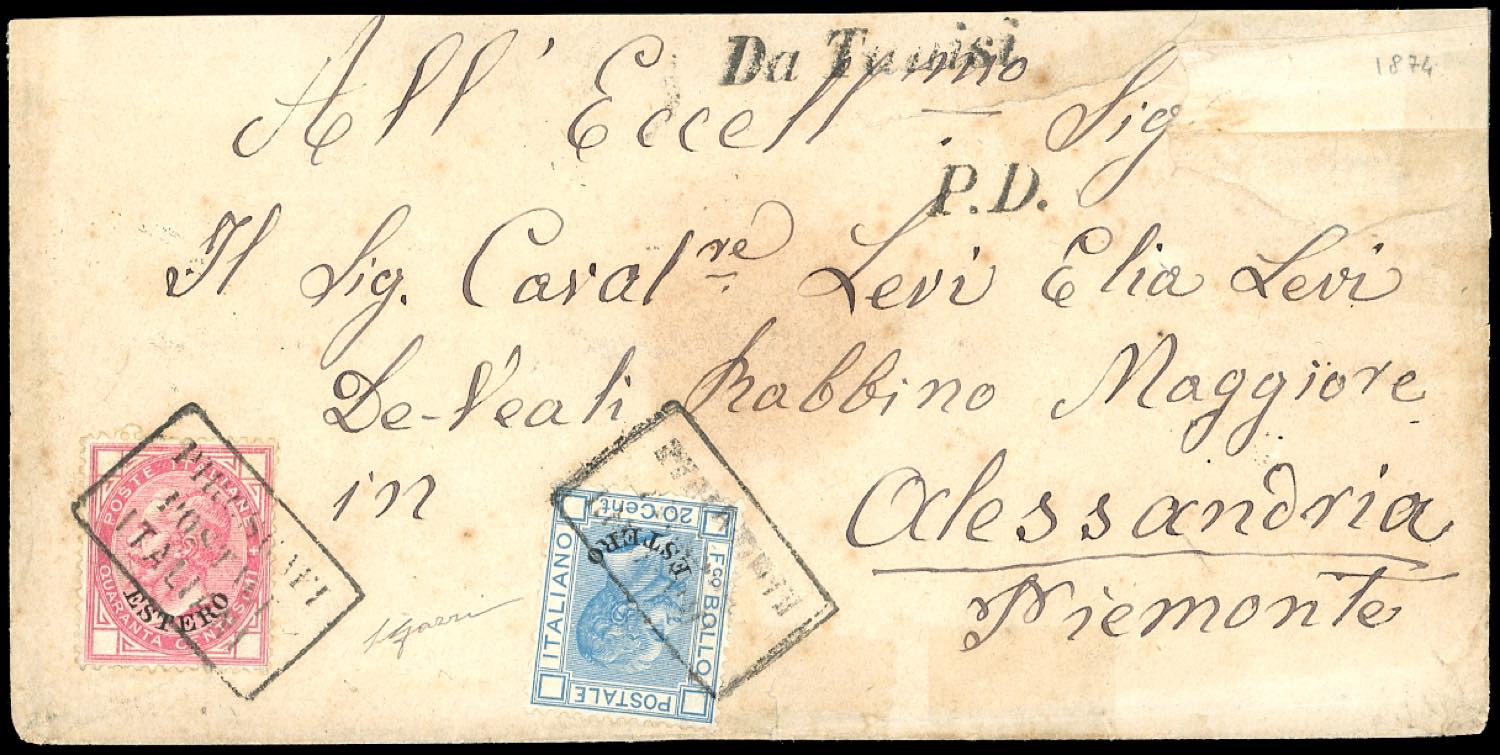 Da Tunisi
1874
All' Eccellmo Sig
P.D.
Il Sig. Cavalre Levi Elia Levi
De-Veali Rabbino Maggiore
in Alessandria
Piemonte
POSTE ITALIANE
QUARANTA CENTESIMI
ESTERO
PIROSCAFI
POSTALI
ITALIANI
20 Cent
Fco BOLLO
POSTALE
ITALIANO
ESTERO
PIROSCAFI